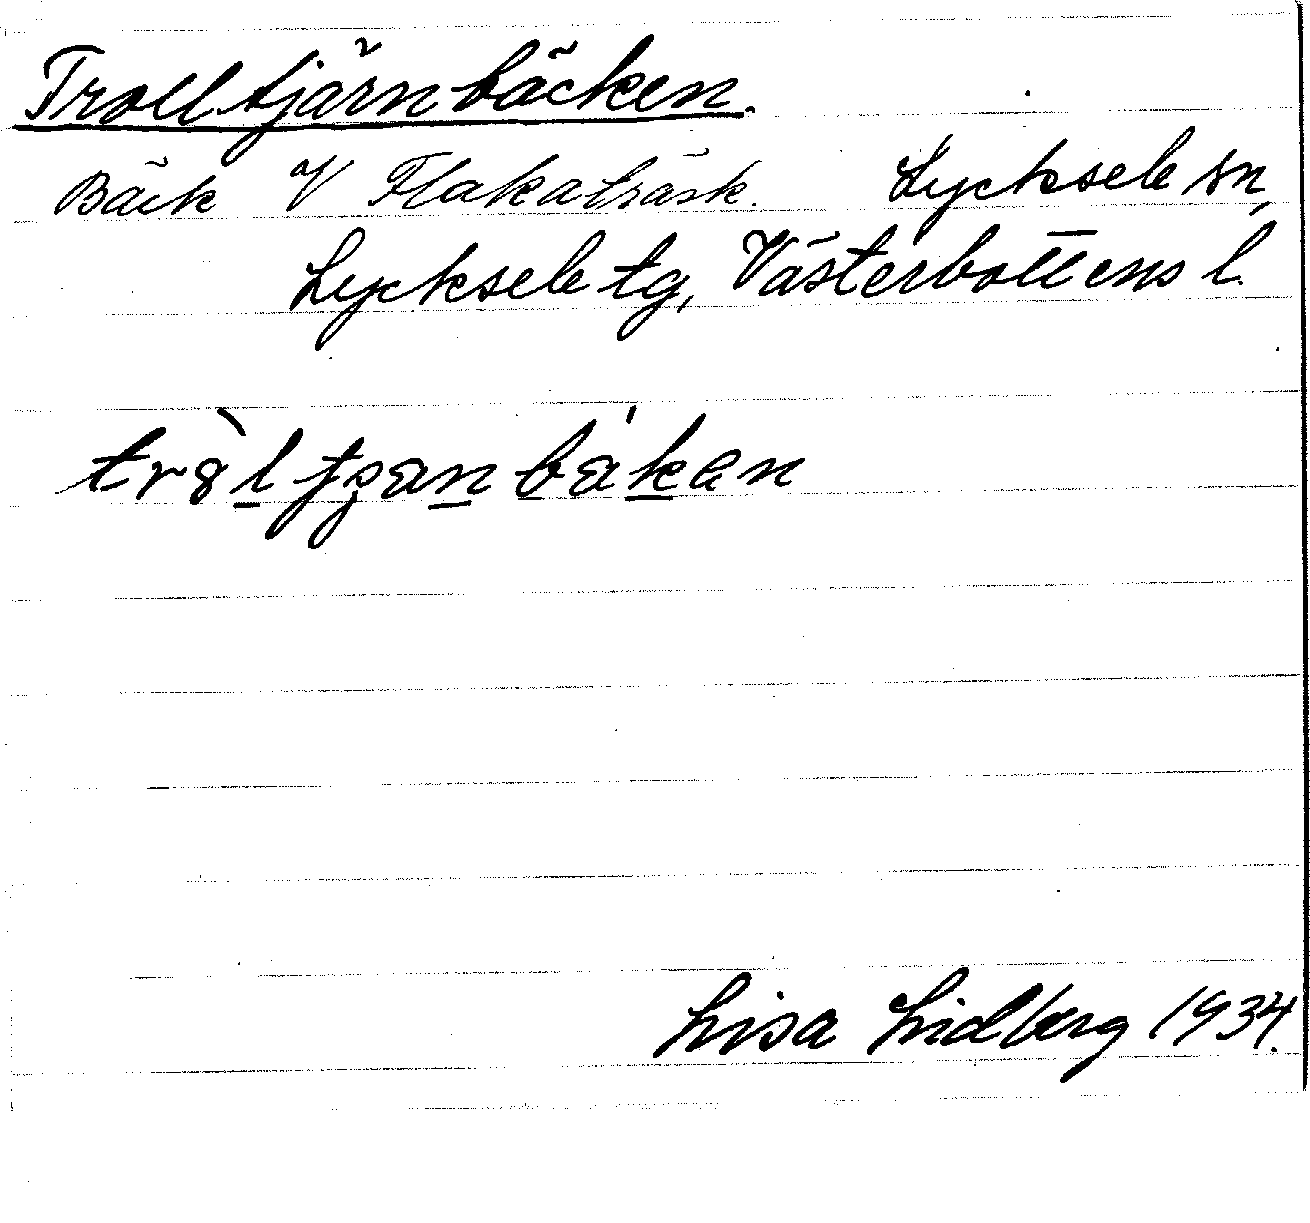 Trolltjärnbäcken.
Bäck V Flakaträsk. Lycksele sn,
Lycksele tg, Västerbottens l.
Lisa Lidberg 1934.